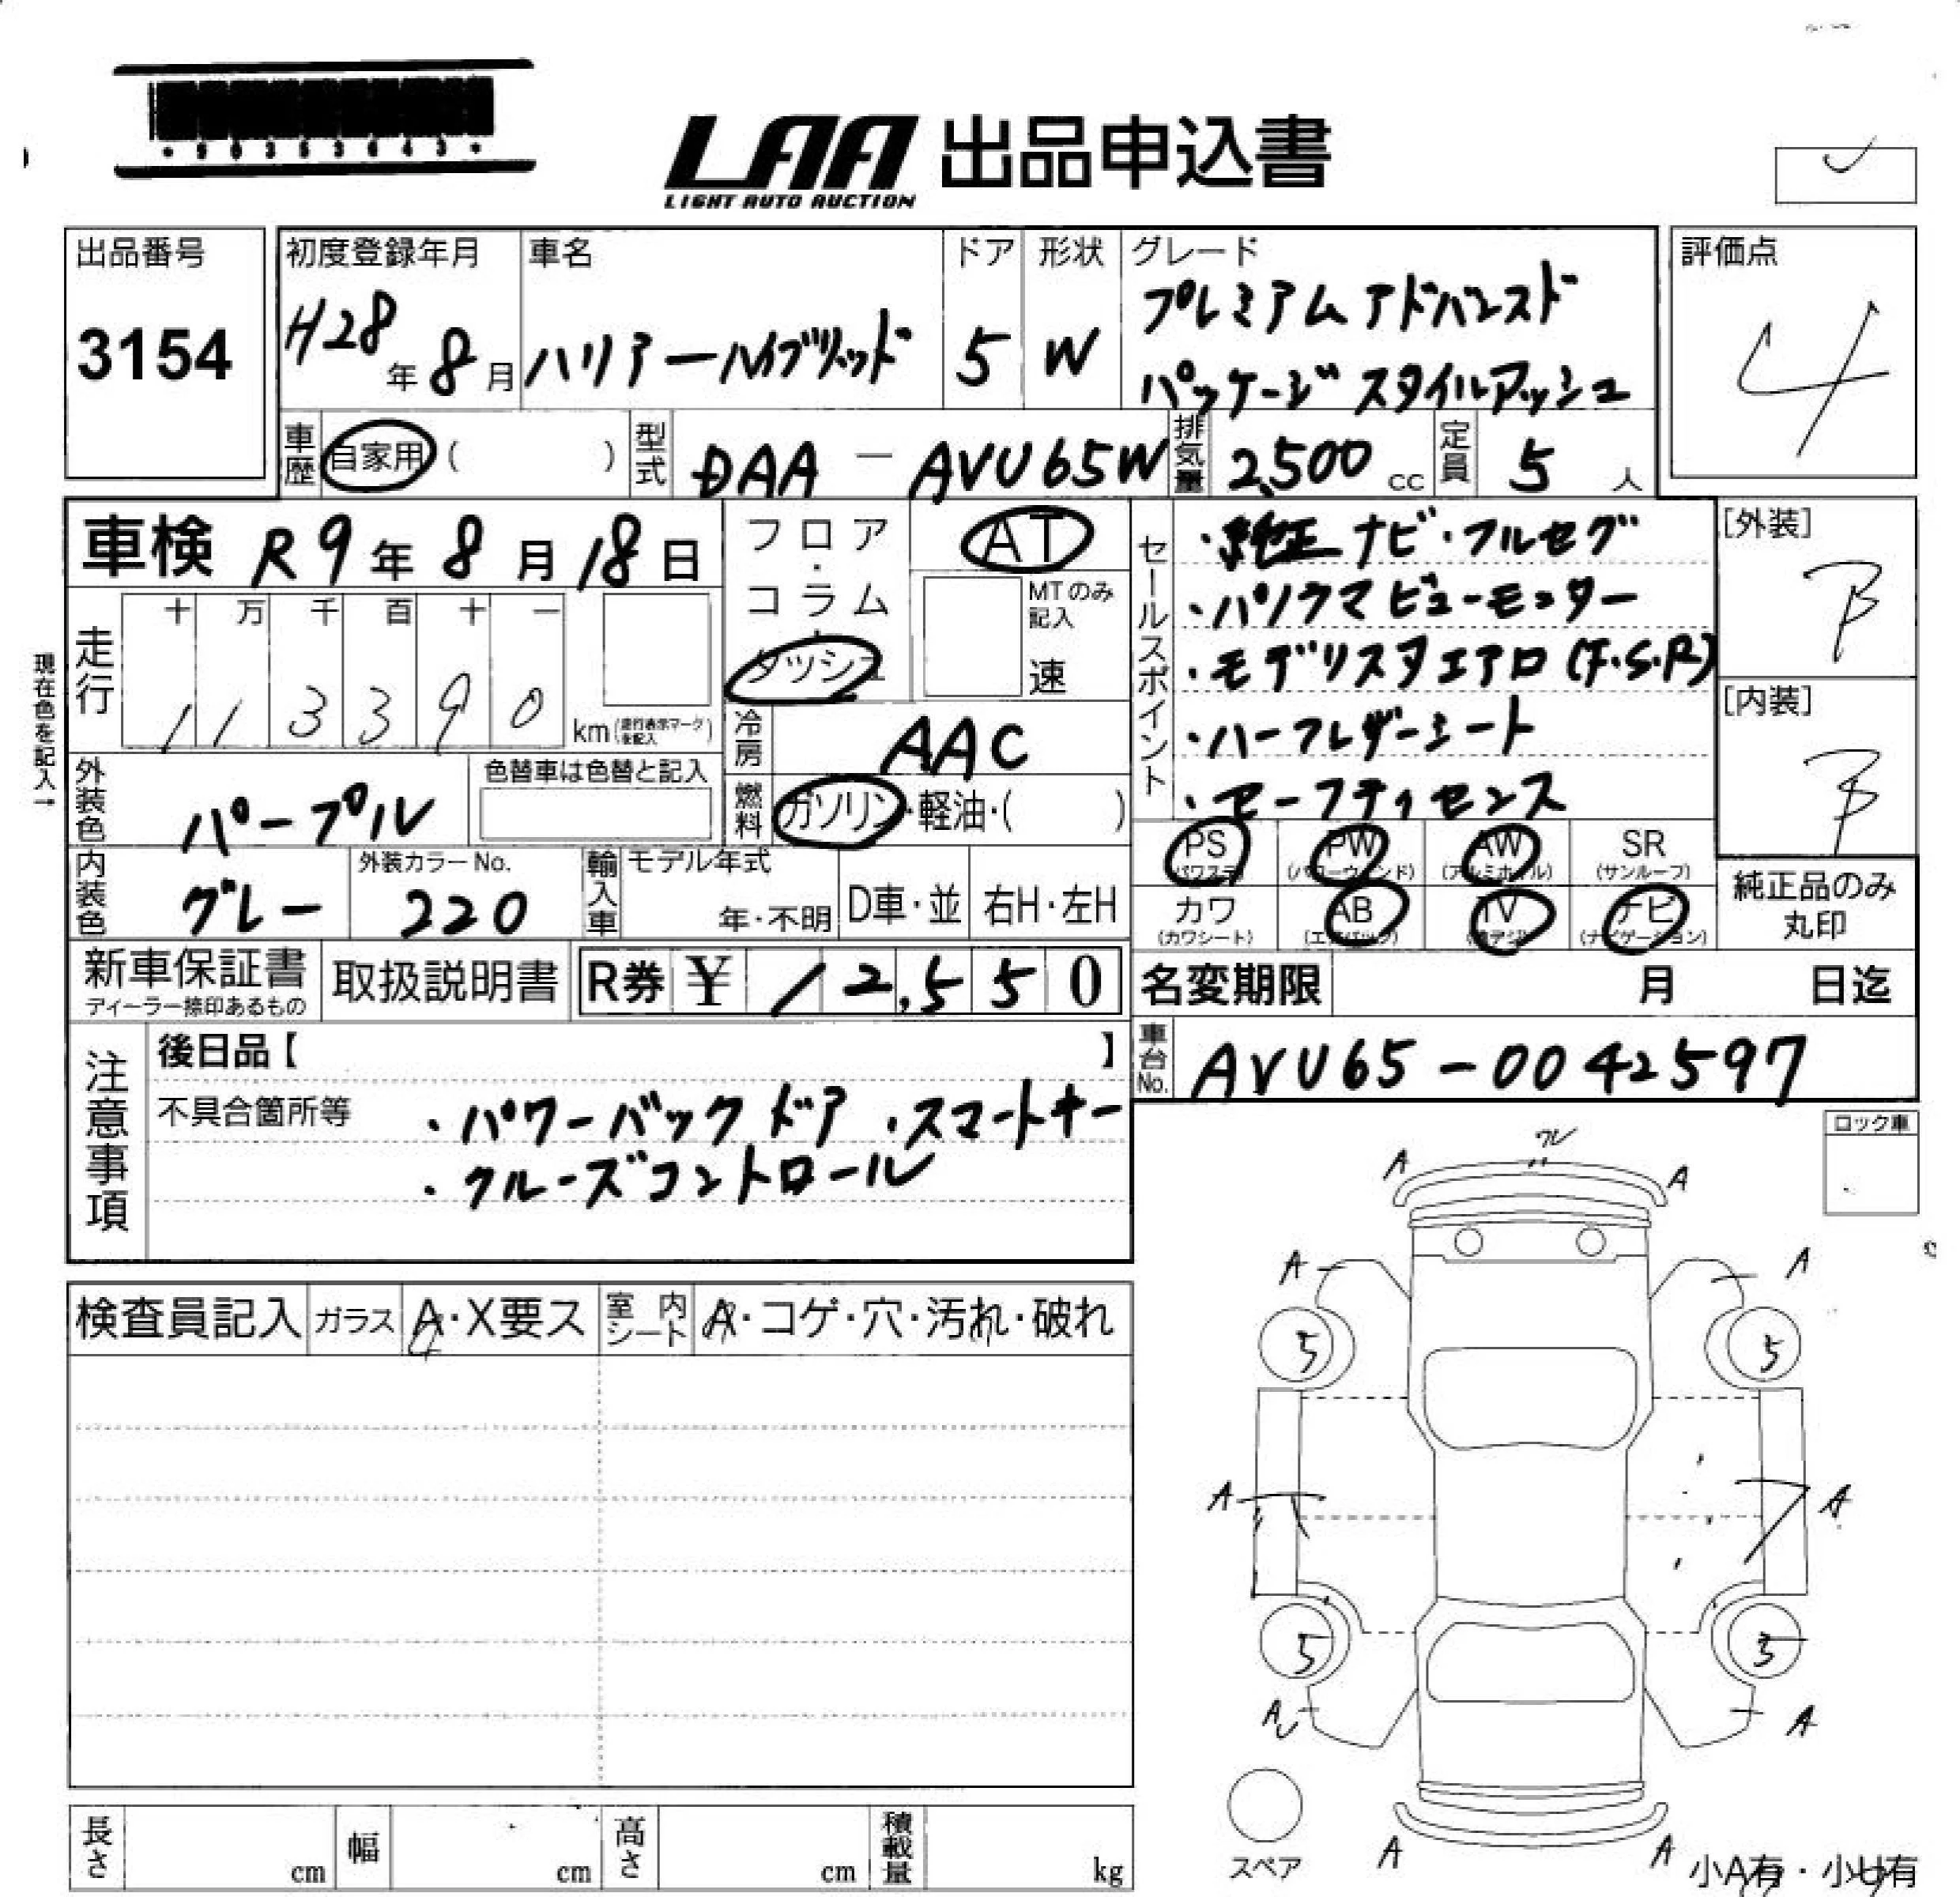 ・90353643・
LAA 出品申込書
LIGHT AUTO AUCTION
出品番号
3154
初度登録年月
H28年 8月
車名
ハリアーハイブリッド
ドア
5
形状
W
グレード
プレミアムアドバンスド
パッケージ スタイルアッシュ
評価点
4
車歴
自家用 ( )
型式
DAA - AVU65W
排気量
2,500 cc
定員
5 人
車検 R9年 8月 18日
現在色を記入→
走行
十 万 千 百 十 一
1 1 3 3 9 0
km (走行表示マークを記入)
フロア・コラム・ダッシュ
AT
MTのみ記入
速
セールスポイント
・純正 ナビ・フルセグ
・パノラマビューモニター
・モデリスタエアロ(F.S.R)
・ハーフレザーシート
・セーフティセンス
[外装]
B
[内装]
B
冷房
AAC
燃料
ガソリン・軽油・( )
外装色
パープル
色替車は色替と記入
内装色
グレー
外装カラーNo.
220
輸入車
モデル年式
年・不明
D車・並
右H・左H
PS
(パワステ)
PW
(パワーウィンド)
AW
(アルミホイル)
SR
(サンルーフ)
カワ
(カワシート)
AB
(エアバック)
TV
ナビ
(ナビゲーション)
純正品のみ
丸印
新車保証書
ディーラー捺印あるもの
取扱説明書
R券 ¥ 12,550
名変期限 月 日迄
車台No.
AVU65-0042597
注意事項
後日品【 】
不具合箇所等
・パワーバックドア ・スマートキー
・クルーズコントロール
ロック車
検査員記入
ガラス
A・X要ス
室内シート
A・コゲ・穴・汚れ・破れ
ワレ
A A
A A
5 5
A A
5 5
A A
スペア
A A
小A有・小U有
長さ cm
幅 cm
高さ cm
積載量 kg